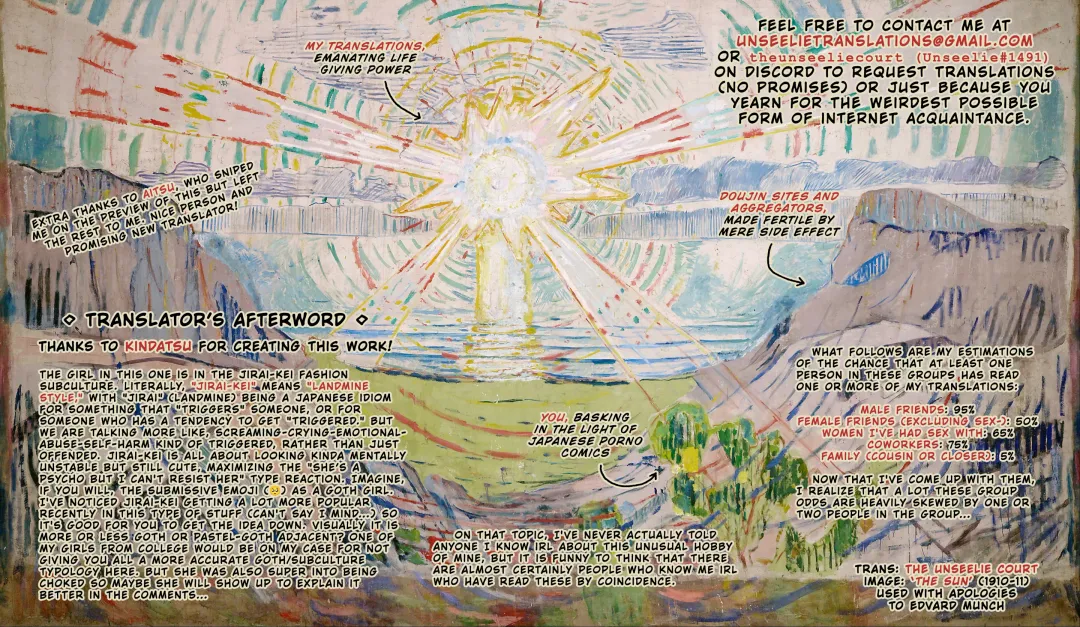 MY TRANSLATIONS,
EMANATING LIFE
GIVING POWER
FEEL FREE TO CONTACT ME AT
UNSEELIETRANSLATIONS@GMAIL.COM
OR theunseeliecourt (Unseelie#1491)
ON DISCORD TO REQUEST TRANSLATIONS
(NO PROMISES) OR JUST BECAUSE YOU
YEARN FOR THE WEIRDEST POSSIBLE
FORM OF INTERNET ACQUAINTANCE.
EXTRA THANKS TO AITSU, WHO SNIPED
ME ON THE PREVIEW OF THIS BUT LEFT
THE REST TO ME. NICE PERSON AND
PROMISING NEW TRANSLATOR!
DOUJIN SITES AND
AGGREGATORS,
MADE FERTILE BY
MERE SIDE EFFECT
◇ TRANSLATOR'S AFTERWORD ◇
THANKS TO KINDATSU FOR CREATING THIS WORK!
THE GIRL IN THIS ONE IS IN THE JIRAI-KEI FASHION
SUBCULTURE. LITERALLY, "JIRAI-KEI" MEANS "LANDMINE
STYLE," WITH "JIRAI" (LANDMINE) BEING A JAPANESE IDIOM
FOR SOMETHING THAT "TRIGGERS" SOMEONE, OR FOR
SOMEONE WHO HAS A TENDENCY TO GET "TRIGGERED." BUT
WE ARE TALKING MORE LIKE, SCREAMING-CRYING-EMOTIONAL-
ABUSE-SELF-HARM KIND OF TRIGGERED, RATHER THAN JUST
OFFENDED. JIRAI-KEI IS ALL ABOUT LOOKING KINDA MENTALLY
UNSTABLE BUT STILL CUTE, MAXIMIZING THE "SHE'S A
PSYCHO BUT I CAN'T RESIST HER" TYPE REACTION. IMAGINE,
IF YOU WILL, THE SUBMISSIVE EMOJI 🥺 AS A GOTH GIRL.
I'VE NOTICED JIRAI-KEI GETTING A LOT MORE POPULAR
RECENTLY IN THIS TYPE OF STUFF (CAN'T SAY I MIND...) SO
IT'S GOOD FOR YOU TO GET THE IDEA DOWN. VISUALLY IT IS
MORE OR LESS GOTH OR PASTEL-GOTH ADJACENT? ONE OF
MY GIRLS FROM COLLEGE WOULD BE ON MY CASE FOR NOT
GIVING YOU ALL A MORE ACCURATE GOTH SUBCULTURE
TYPOLOGY HERE, BUT SHE WAS ALSO SUPER INTO BEING
CHOKED SO MAYBE SHE WILL SHOW UP TO EXPLAIN IT
BETTER IN THE COMMENTS...
YOU, BASKING
IN THE LIGHT OF
JAPANESE PORNO
COMICS
ON THAT TOPIC, I'VE NEVER ACTUALLY TOLD
ANYONE I KNOW IRL ABOUT THIS UNUSUAL HOBBY
OF MINE, BUT IT IS FUNNY TO THINK THAT THERE
ARE ALMOST CERTAINLY PEOPLE WHO KNOW ME IRL
WHO HAVE READ THESE BY COINCIDENCE.
WHAT FOLLOWS ARE MY ESTIMATIONS
OF THE CHANCE THAT AT LEAST ONE
PERSON IN THESE GROUPS HAS READ
ONE OR MORE OF MY TRANSLATIONS:
MALE FRIENDS: 95%
FEMALE FRIENDS (EXCLUDING SEX-): 50%
WOMEN I'VE HAD SEX WITH: 65%
COWORKERS: 75%
FAMILY (COUSIN OR CLOSER): 5%
NOW THAT I'VE COME UP WITH THEM,
I REALIZE THAT A LOT THESE GROUP
ODDS ARE HEAVILY SKEWED BY ONE OR
TWO PEOPLE IN THE GROUP...
TRANS: THE UNSEELIE COURT
IMAGE: 'THE SUN' (1910-11)
USED WITH APOLOGIES
TO EDVARD MUNCH